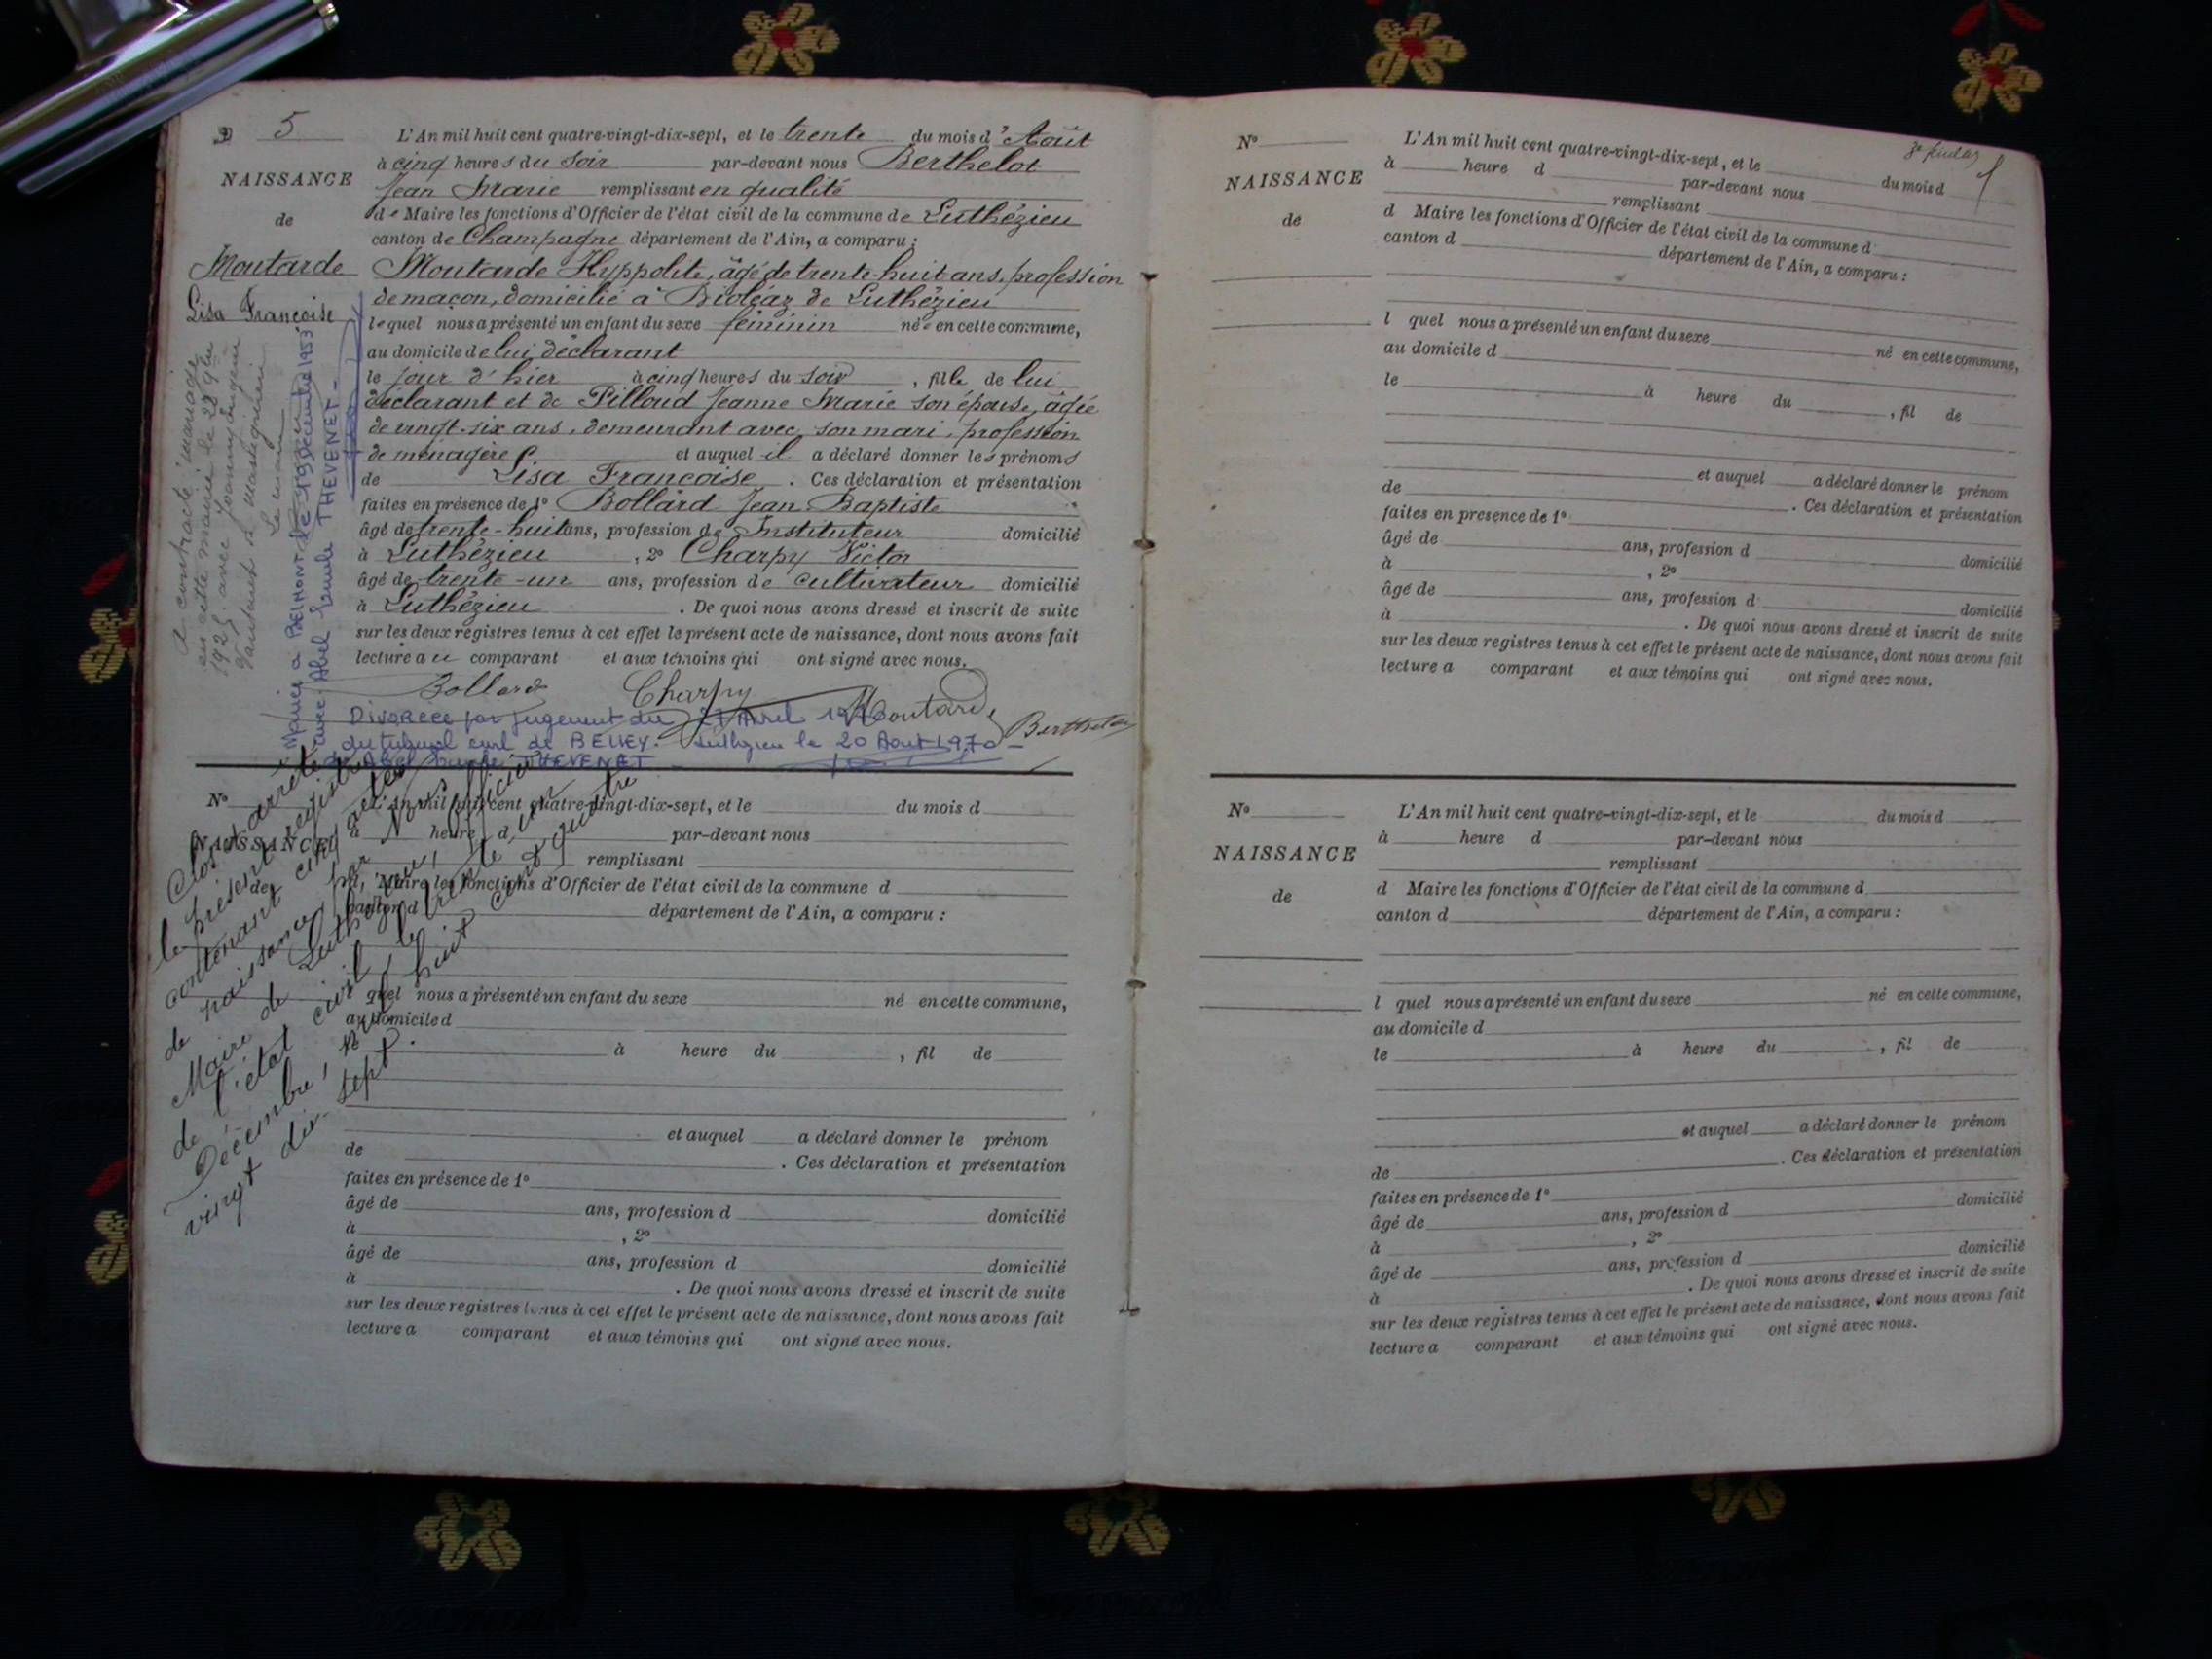 N° 5
NAISSANCE
de
Moutarde
Lisa Françoise
L'An mil huit cent quatre-vingt-dix-sept, et le trente du mois d'Août
à cinq heures du soir par-devant nous Berthelot
Jean Marie remplissant en qualité
de Maire les fonctions d'Officier de l'état civil de la commune de Luthézieu
canton de Champagne département de l'Ain, a comparu :
Moutarde Hyppolite, âgé de trente-huit ans, profession
de maçon, domicilié à Bioléaz de Luthézieu
lequel nous a présenté un enfant du sexe féminin née en cette commune,
au domicile de lui déclarant
le jour d'hier à cinq heures du soir, fille de lui
déclarant et de Pilloud Jeanne Marie son épouse, âgée
de vingt-six ans, demeurant avec son mari, profession
de ménagère et auquel il a déclaré donner les prénoms
de Lisa Françoise. Ces déclaration et présentation
faites en présence de 1° Bollard Jean Baptiste
âgé de trente-huit ans, profession de Instituteur domicilié
à Luthézieu, 2° Charpy Victor
âgé de trente-un ans, profession de cultivateur domicilié
à Luthézieu. De quoi nous avons dressé et inscrit de suite
sur les deux registres tenus à cet effet le présent acte de naissance, dont nous avons fait
lecture au comparant et aux témoins qui ont signé avec nous.
Bollard Charpy Moutarde Berthelot
A contracté mariage
en cette mairie le 28
192 avec Joanny Eugène
à
Le maire
Mariée à BELMONT le 19 Décembre 1953
avec Abel THEVENET
Divorcée par jugement du 27 Avril
du tribunal civil de BELLEY. Luthézieu le 20 Août 1970
THEVENET
Clos et arrêté
le présent registre
contenant cinq actes
de naissance, par Nous
Maire de Luthézieu, officier
de l'état civil, le trente un
Décembre, mil huit cent quatre
vingt dix-sept.
N°
NAISSANCE
de
L'An mil huit cent quatre-vingt-dix-sept, et le du mois d
à heure d par-devant nous
remplissant
d Maire les fonctions d'Officier de l'état civil de la commune d
canton d département de l'Ain, a comparu :
l quel nous a présenté un enfant du sexe né en cette commune,
au domicile d
le à heure du , fil de
et auquel a déclaré donner le prénom
de . Ces déclaration et présentation
faites en présence de 1°
âgé de ans, profession d domicilié
à , 2°
âgé de ans, profession d domicilié
à . De quoi nous avons dressé et inscrit de suite
sur les deux registres tenus à cet effet le présent acte de naissance, dont nous avons fait
lecture a comparant et aux témoins qui ont signé avec nous.
N°
NAISSANCE
de
L'An mil huit cent quatre-vingt-dix-sept, et le du mois d
à heure d par-devant nous
remplissant
d Maire les fonctions d'Officier de l'état civil de la commune d
canton d département de l'Ain, a comparu :
l quel nous a présenté un enfant du sexe né en cette commune,
au domicile d
le à heure du , fil de
et auquel a déclaré donner le prénom
de . Ces déclaration et présentation
faites en présence de 1°
âgé de ans, profession d domicilié
à , 2°
âgé de ans, profession d domicilié
à . De quoi nous avons dressé et inscrit de suite
sur les deux registres tenus à cet effet le présent acte de naissance, dont nous avons fait
lecture a comparant et aux témoins qui ont signé avec nous.
N°
NAISSANCE
de
L'An mil huit cent quatre-vingt-dix-sept, et le du mois d
à heure d par-devant nous
remplissant
d Maire les fonctions d'Officier de l'état civil de la commune d
canton d département de l'Ain, a comparu :
l quel nous a présenté un enfant du sexe né en cette commune,
au domicile d
le à heure du , fil de
et auquel a déclaré donner le prénom
de . Ces déclaration et présentation
faites en présence de 1°
âgé de ans, profession d domicilié
à , 2°
âgé de ans, profession d domicilié
à . De quoi nous avons dressé et inscrit de suite
sur les deux registres tenus à cet effet le présent acte de naissance, dont nous avons fait
lecture a comparant et aux témoins qui ont signé avec nous.